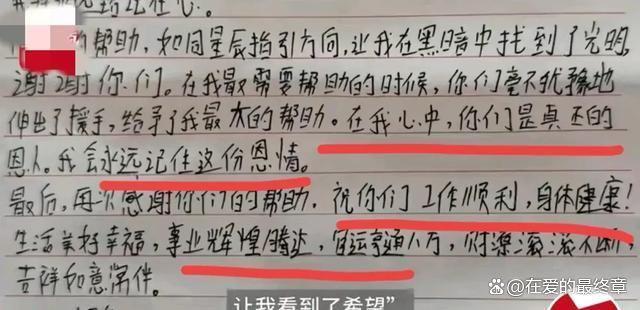 永远记在心。
的帮助，如同星辰指引方向，让我在黑暗中找到了光明
谢谢你们。在我最需要帮助的时候，你们毫不犹豫地
伸出了援手，给予了我最大的帮助。在我心中，你们是真正的
恩人。我会永远记住这份恩情。
最后，再次感谢你们的帮助，祝你们工作顺利，身体健康！
生活美好幸福，事业辉煌腾达，官运亨通八方，财源滚滚不断，
吉祥如意常伴。
让我看到了希望”
@在爱的最终章